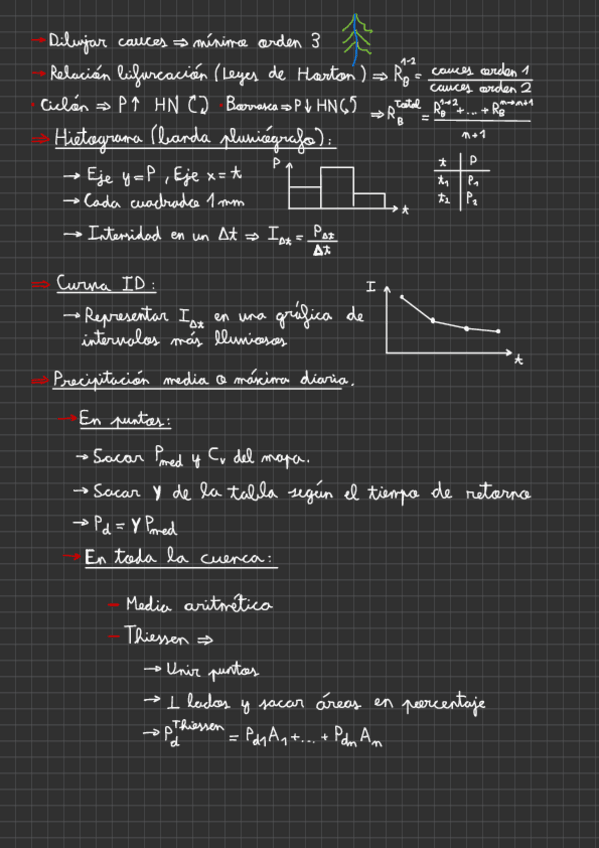 → Dibujar cauces ⇒ mínimo orden 3
→ Relación bifurcación (Leyes de Horton) ⇒ R_B^{1-2} = cauces orden 1 / cauces orden 2
· Ciclón ⇒ P↑ HN ↻ · Borrasca ⇒ P↓ HN ↺ ⇒ R_B^{total} = R_B^{1→2} + ... + R_B^{n→n+1} / n+1
⇒ Hietograma (banda pluviógrafo):
→ Eje y = P, Eje x = t
→ Cada cuadrado 1 mm
→ Intensidad en un Δt ⇒ I_{Δt} = P_{Δt} / Δt
P
t
t P
t₁ P₁
t₂ P₂
⇒ Curva ID:
→ Representar I_{Δt} en una gráfica de
intervalos más lluviosos
I
t
⇒ Precipitación media o máxima diaria.
→ En puntos:
→ Sacar P_{med} y C_v del mapa.
→ Sacar Y de la tabla según el tiempo de retorno
→ P_d = Y P_{med}
→ En toda la cuenca:
– Media aritmética
– Thiessen ⇒
→ Unir puntos
→ ⊥ lados y sacar áreas en porcentaje
→ P_d^{Thiessen} = P_{d1} A₁ + ... + P_{dn} A_n